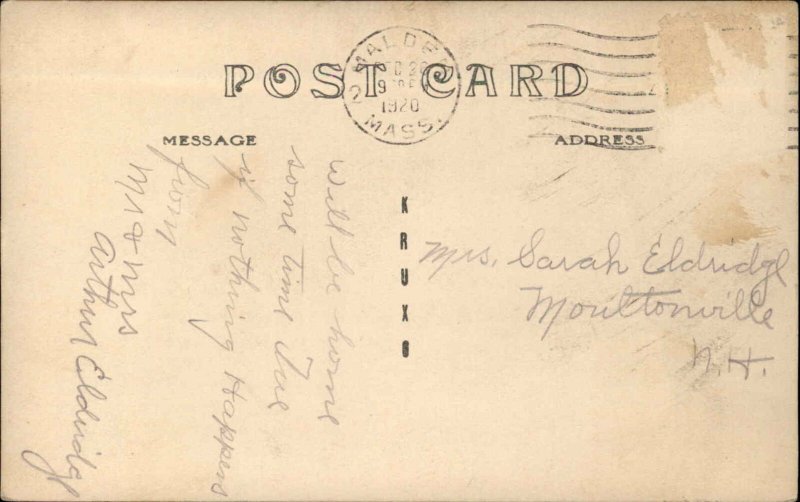 POST CARD
MALDE
2
1920
MASS.
MESSAGE
ADDRESS
Will be home
some time Tue
if nothing Happens
from
Mr & Mrs
Arthur Eldridge
KRUXO
Mrs. Sarah Eldridge
Moultonville
N.H.